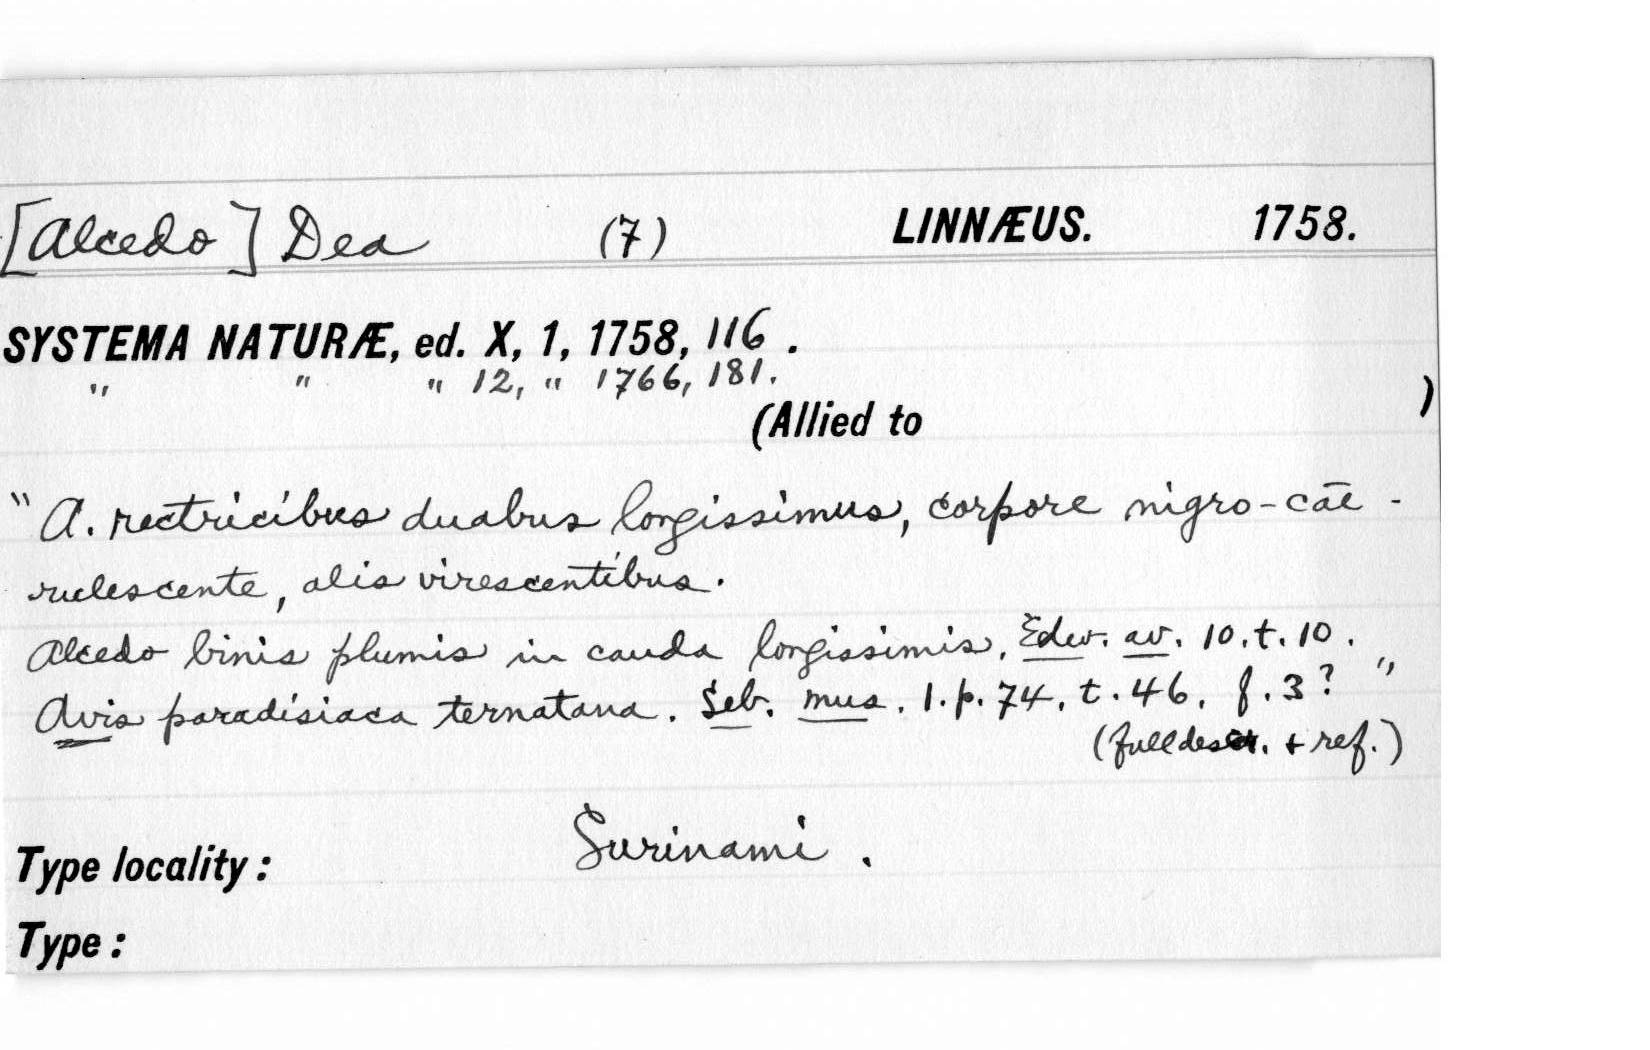 [Alcedo] Dea (7) LINNÆUS. 1758.
SYSTEMA NATURÆ, ed. X, 1, 1758, 116.
" " " 12, " 1766, 181.
(Allied to )
"A. rectricibus duabus longissimus, corpore nigro-cāe-
rulescente, alis virescentibus.
Alcedo binis plumis in cauda longissimis. Edw. av. 10. t. 10.
Avis paradisiaca ternatana. Seb. mus. 1. p. 74. t. 46. f. 3? "
(full descr. + ref.)
Type locality: Surinami.
Type: